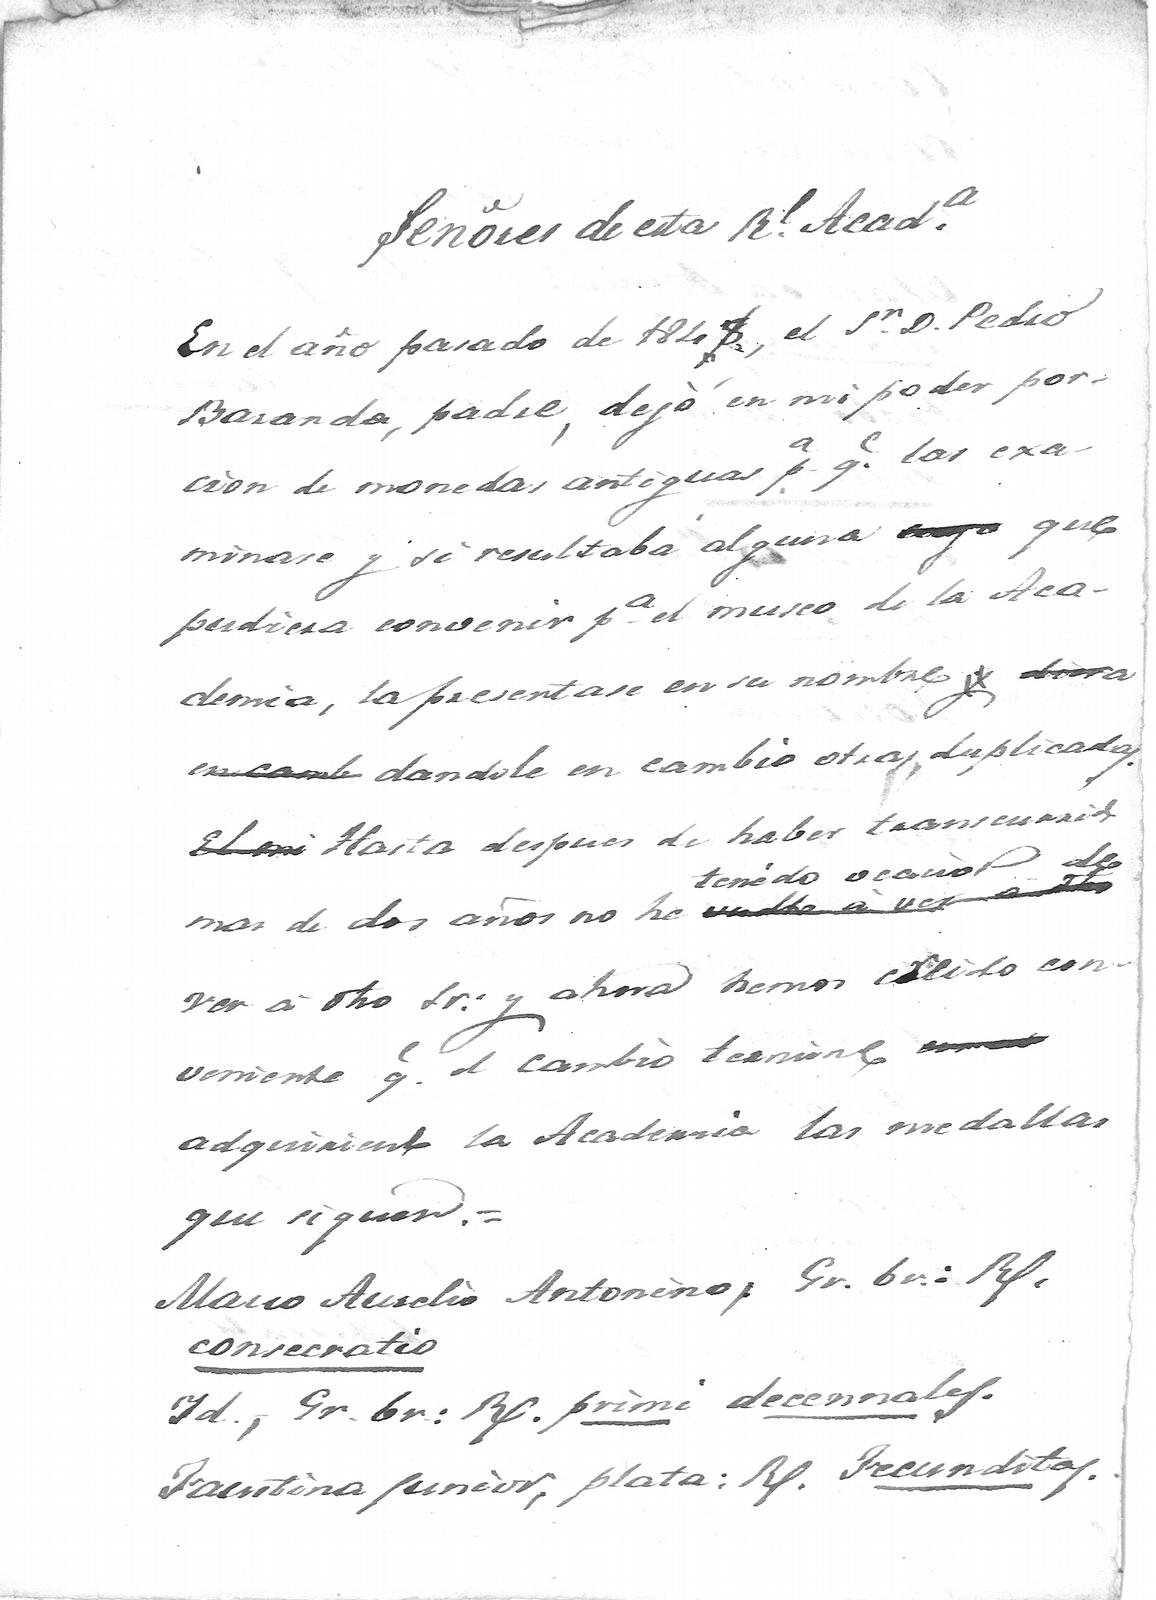 Señores de esta Rl. Acad.a
En el año pasado de 184, el Sr. D. Pedro
Baranda, padre, dejó en mi poder por-
cion de monedas antiguas p.a q.e las exa-
minase y si resultaba alguna que
pudiera convenir p.a el museo de la Aca-
demia, la presentase en su nombre y
en camb dandole en cambio otras duplicadas.
El mi Hasta despues de haber transcurrido
tenido ocasion de
mas de dos años no he vuelto à ver à dho
ver à dho Sr: y ahora hemos creido con-
veniente q.e el cambio termine
adquiriendo la Academia las medallas
que siguen.=
Marco Aurelio Antonino, Gr. br.: R/.
consecratio
Id., Gr. br: R/. primi decennales.
Faustina junior, plata: R/. Fecunditas.